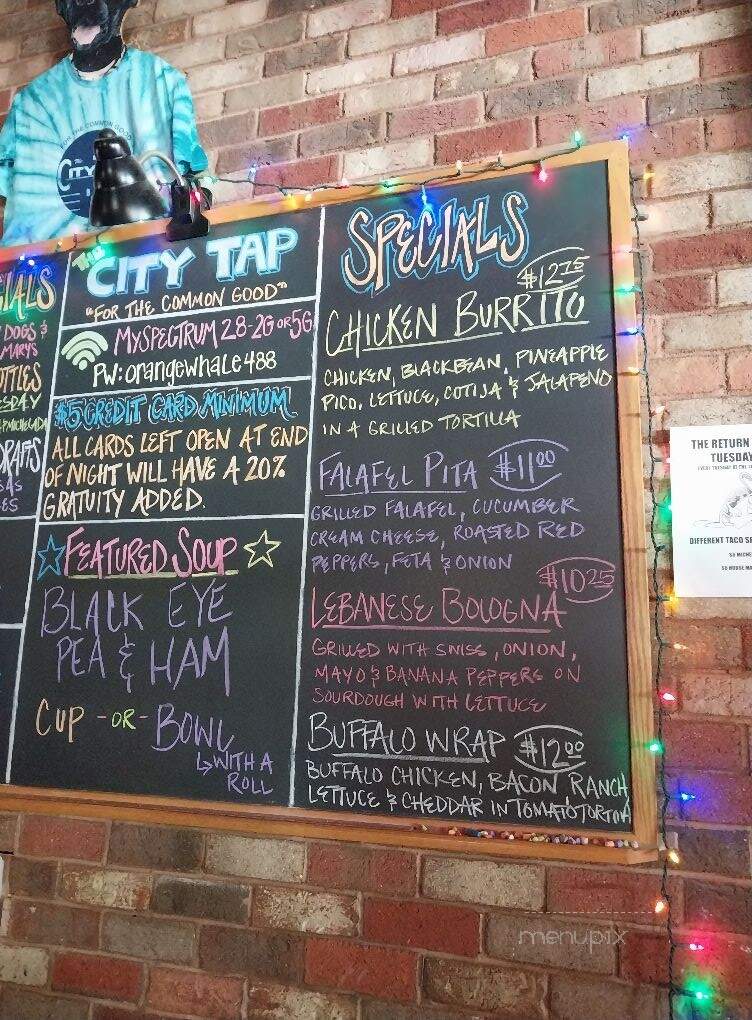 FOR THE COMMON GOOD
CITY
IALS
DOGS &
MARYS
TTIES
SDAY
MICHELADA
DRAFTS
THE
CITY TAP
"FOR THE COMMON GOOD"
MYSPECTRUM 28-2G OR 5G
PW: orangewhale488
$5 CREDIT CARD MINIMUM
ALL CARDS LEFT OPEN AT END
OF NIGHT WILL HAVE A 20%
GRATUITY ADDED.
FEATURED SOUP
BLACK EYE
PEA & HAM
CUP -OR- BOWL
↳ WITH A
ROLL
SPECIALS
$12.75
CHICKEN BURRITO
CHICKEN, BLACKBEAN, PINEAPPLE
PICO, LETTUCE, COTIJA & JALAPENO
IN A GRILLED TORTILLA
FALAFEL PITA $11.00
GRILLED FALAFEL, CUCUMBER
CREAM CHEESE, ROASTED RED
PEPPERS, FETA & ONION
$10.25
LEBANESE BOLOGNA
GRILLED WITH SWISS, ONION,
MAYO & BANANA PEPPERS ON
SOURDOUGH WITH LETTUCE
BUFFALO WRAP $12.00
BUFFALO CHICKEN, BACON RANCH
LETTUCE & CHEDDAR IN TOMATO TORTILLA
THE RETURN
TUESDAY
DIFFERENT TACO SP
$3 MICHE
$3 HOUSE MA
menupix